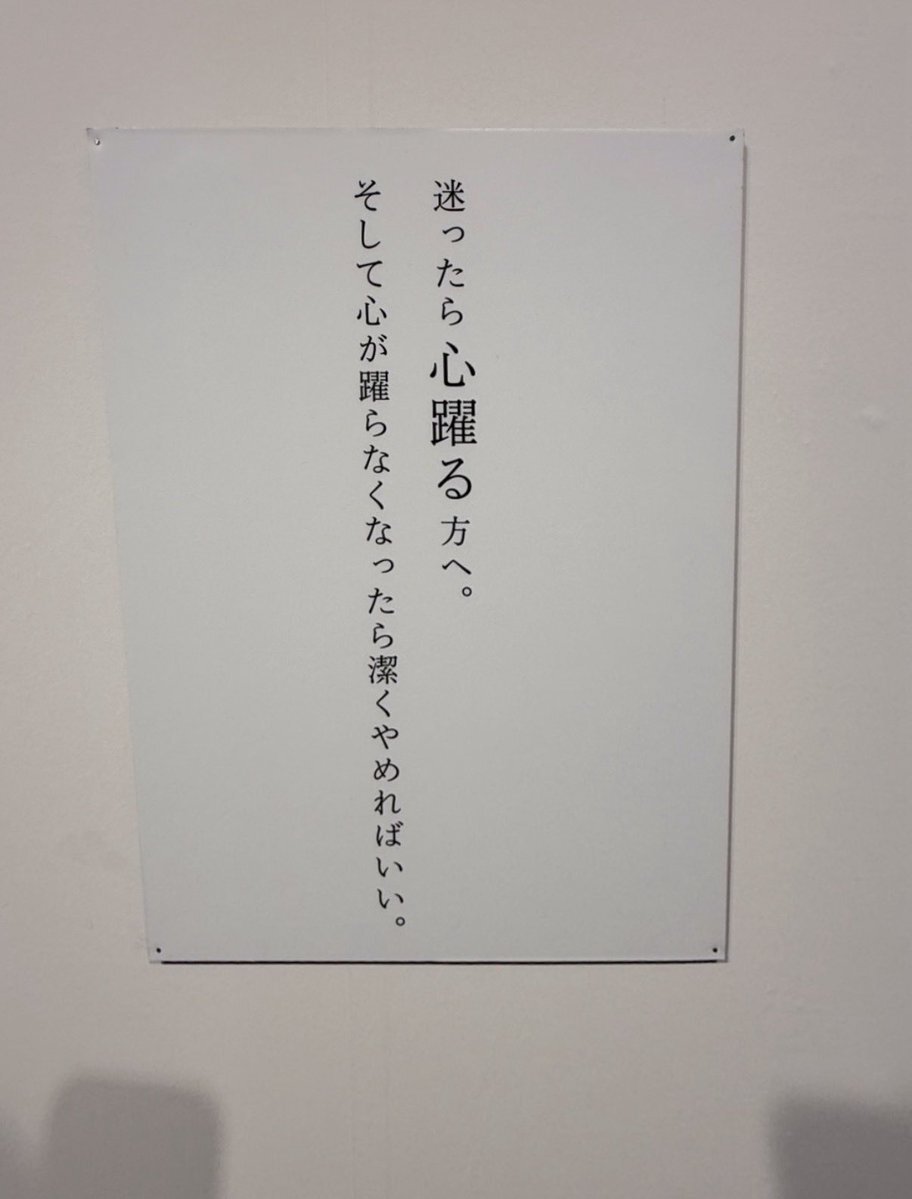 迷ったら心躍る方へ。
そして心が躍らなくなったら潔くやめればいい。